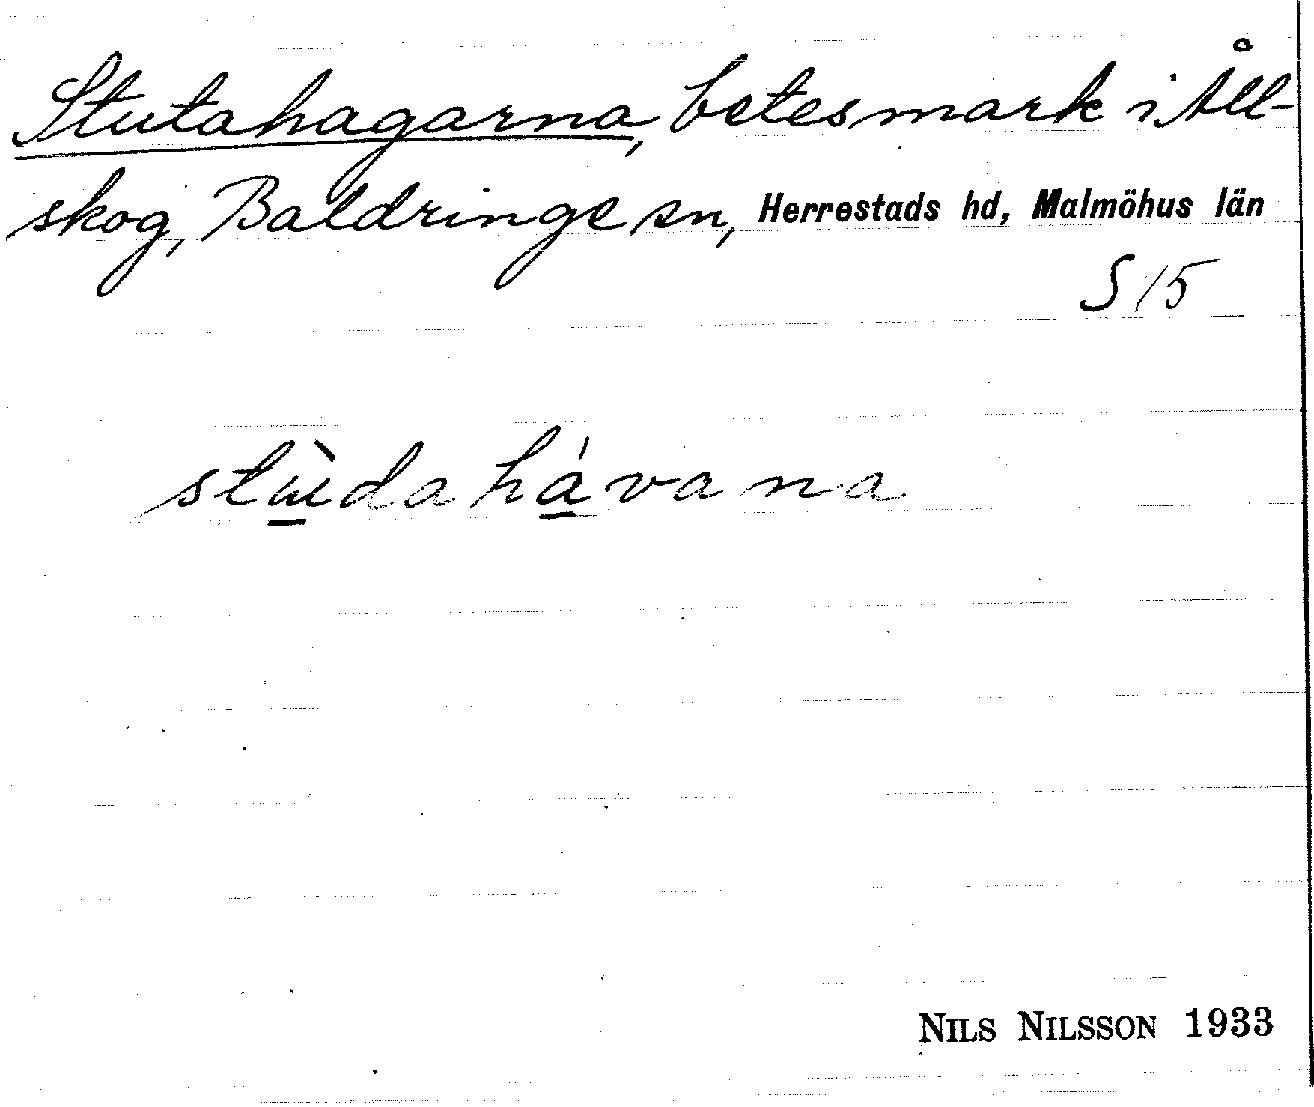 Stutahagarna, betesmark i Åll-
skog, Baldringe sn, Herrestads hd, Malmöhus län
S 15
stɯ̀dahávana
NILS NILSSON 1933